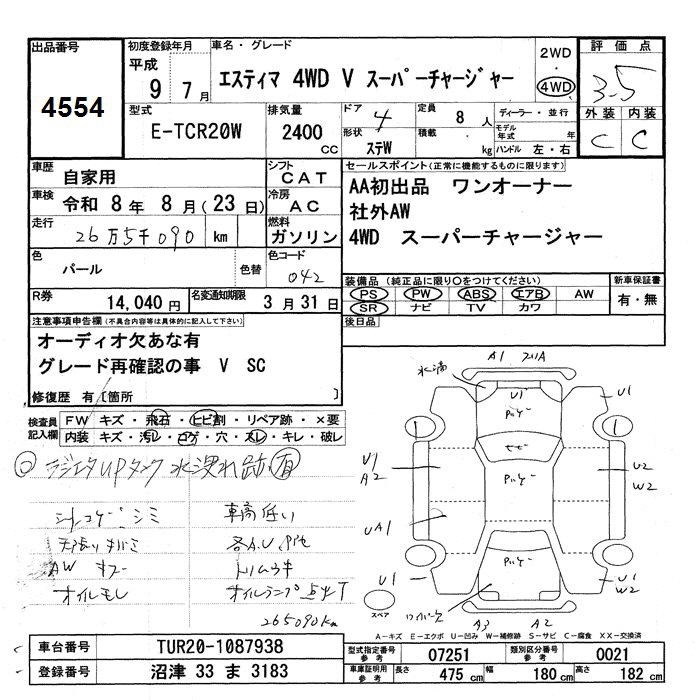 出品番号
4554
初度登録年月
平成
9 7月
車名・グレード
エスティマ 4WD V スーパーチャージャー
2WD
・
4WD
評価点
3.5
外装 内装
C C
型式
E-TCR20W
排気量
2400
cc
ドア
4
形状
ステW
定員
8 人
積載
kg
ディーラー・並行
モデル年式 年
ハンドル 左・右
車歴
自家用
車検
令和 8年 8月(23日)
走行
26万5千090 km
色
パール
色替
R券
14,040円
名変通知期限
3月31日
シフト
CAT
冷房
AC
燃料
ガソリン
色コード
042
セールスポイント(正常に機能するものに限ります)
AA初出品 ワンオーナー
社外AW
4WD スーパーチャージャー
装備品(純正品に限り○をつけてください)
PS PW ABS エアB AW
SR ナビ TV カワ
新車保証書
有・無
後日品
注意事項申告欄(不具合内容等は具体的に記入して下さい)
オーディオ欠あな有
グレード再確認の事 V SC
修復歴 有〔箇所 〕
検査員
記入欄
FW キズ・飛石・ヒビ割・リペア跡・×要
内装 キズ・汚レ・コゲ・穴・スレ・キレ・破レ
ラジエタUPタンク水漏れ跡有
シートコゲ・シミ
車高低い
オイルモレ
オイルランプ点灯
265090km
A1
U1
U1
U1
A2
UA1
U1
U2
W2
U1
W2
A3
A2
スペア
A-キズ E-エクボ U-凹み W-補修跡 S-サビ C-腐食 XX-交換済
車台番号
TUR20-1087938
登録番号
沼津 33 ま 3183
型式指定番号
参考
07251
類別区分番号
参考
0021
車庫証明用
参考
長さ 475 cm 幅 180 cm 高さ 182 cm